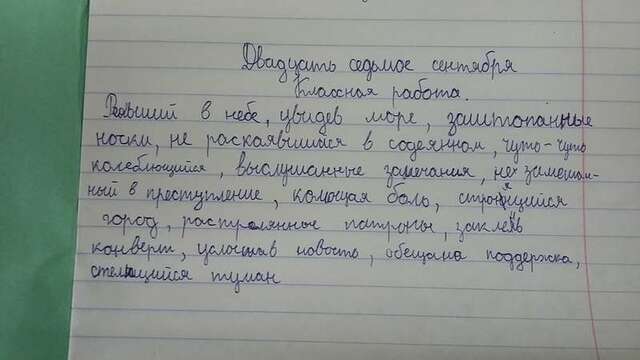 Двадцать седьмое сентября
Классная работа.
Реявший в небе, увидев море, заштопанные
носки, не раскаявшийся в содеянном, чуть-чуть
колеблющийся, выслушанные замечания, не замешан-
ный в преступление, колющая боль, строящийся
город, растрелянные патроны, заклеив
конверт, услышав новость, обещана поддержка,
стелющийся туман